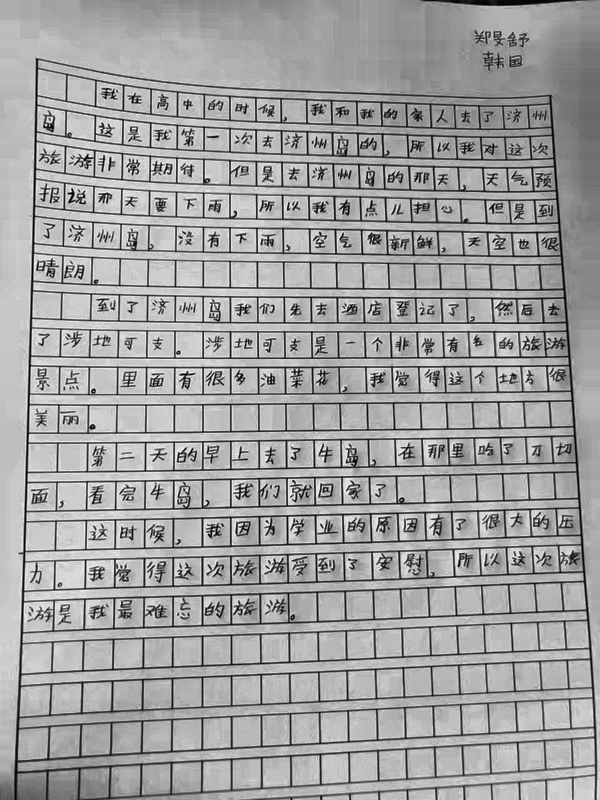 郑旻舒
韩国
我在高中的时候，我和我的家人去了济州
岛。这是我第一次去济州岛的，所以我对这次
旅游非常期待。但是去济州岛的那天，天气预
报说那天要下雨，所以我有点儿担心。但是到
了济州岛，没有下雨，空气很新鲜，天空也很
晴朗。
到了济州岛我们先去酒店登记了，然后去
了涉地可支。涉地可支是一个非常有名的旅游
景点。里面有很多油菜花，我觉得这个地方很
美丽。
第二天的早上去了牛岛，在那里吃了刀切
面，看完牛岛，我们就回家了。
这时候，我因为学业的原因有了很大的压
力。我觉得这次旅游受到了安慰，所以这次旅
游是我最难忘的旅游。